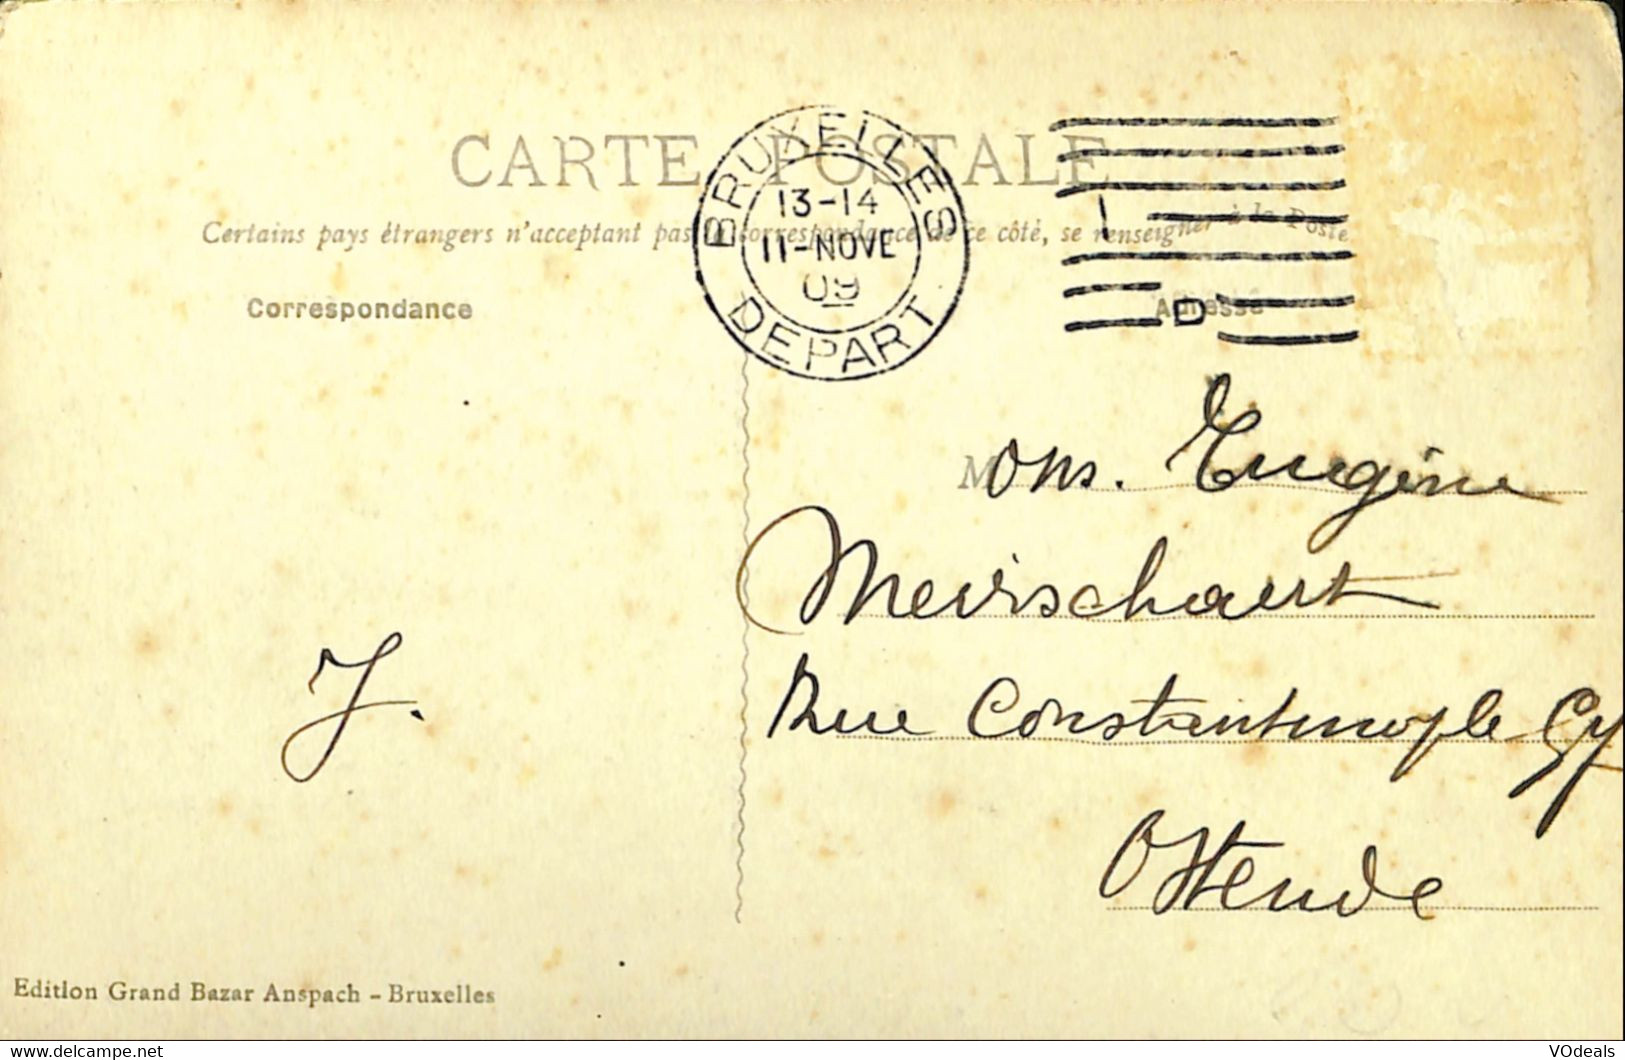 CARTE POSTALE
Certains pays étrangers n'acceptant pas la correspondance de ce côté, se renseigner à la Poste
Correspondance
Adresse
BRUXELLES
13-14
11-NOVE
09
DEPART
D
Mons. Eugène
Meirschaert
Rue Constantinople
Ostende
J.
Edition Grand Bazar Anspach - Bruxelles
delcampe.net
VOdeals